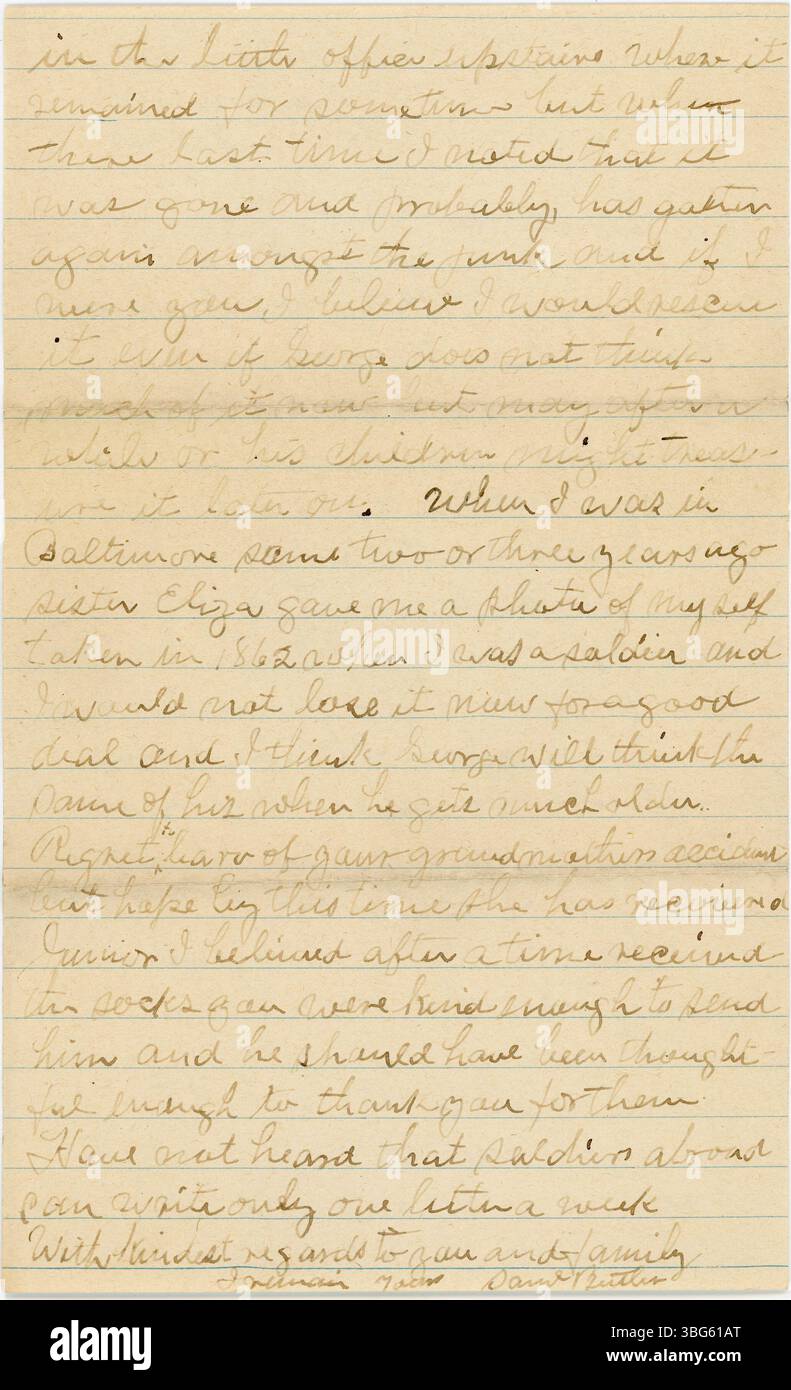 in the little office upstairs where it
remained for sometime but when
there last time I noted that it
was gone and probably has gotten
again amongst the junk and if I
were you I believe I would rescue
it even if George does not think
much of it now but may after a
while or his children might treas-
ure it later on. When I was in
Baltimore some two or three years ago
sister Eliza gave me a photo of myself
taken in 1862 when I was a soldier and
I would not lose it now for a good
deal and I think George will think the
same of his when he gets much older.
Regret to hear of your grandmothers accident
but hope by this time she has recovered
Junior I believed after a time received
the socks you were kind enough to send
him and he should have been thought-
ful enough to thank you for them
Have not heard that soldiers abroad
can write only one letter a week
With kindest regards to you and family
I remain yours Saml Butler
alamy
alamy
www.alamy.com
Image ID: 3BG61AT